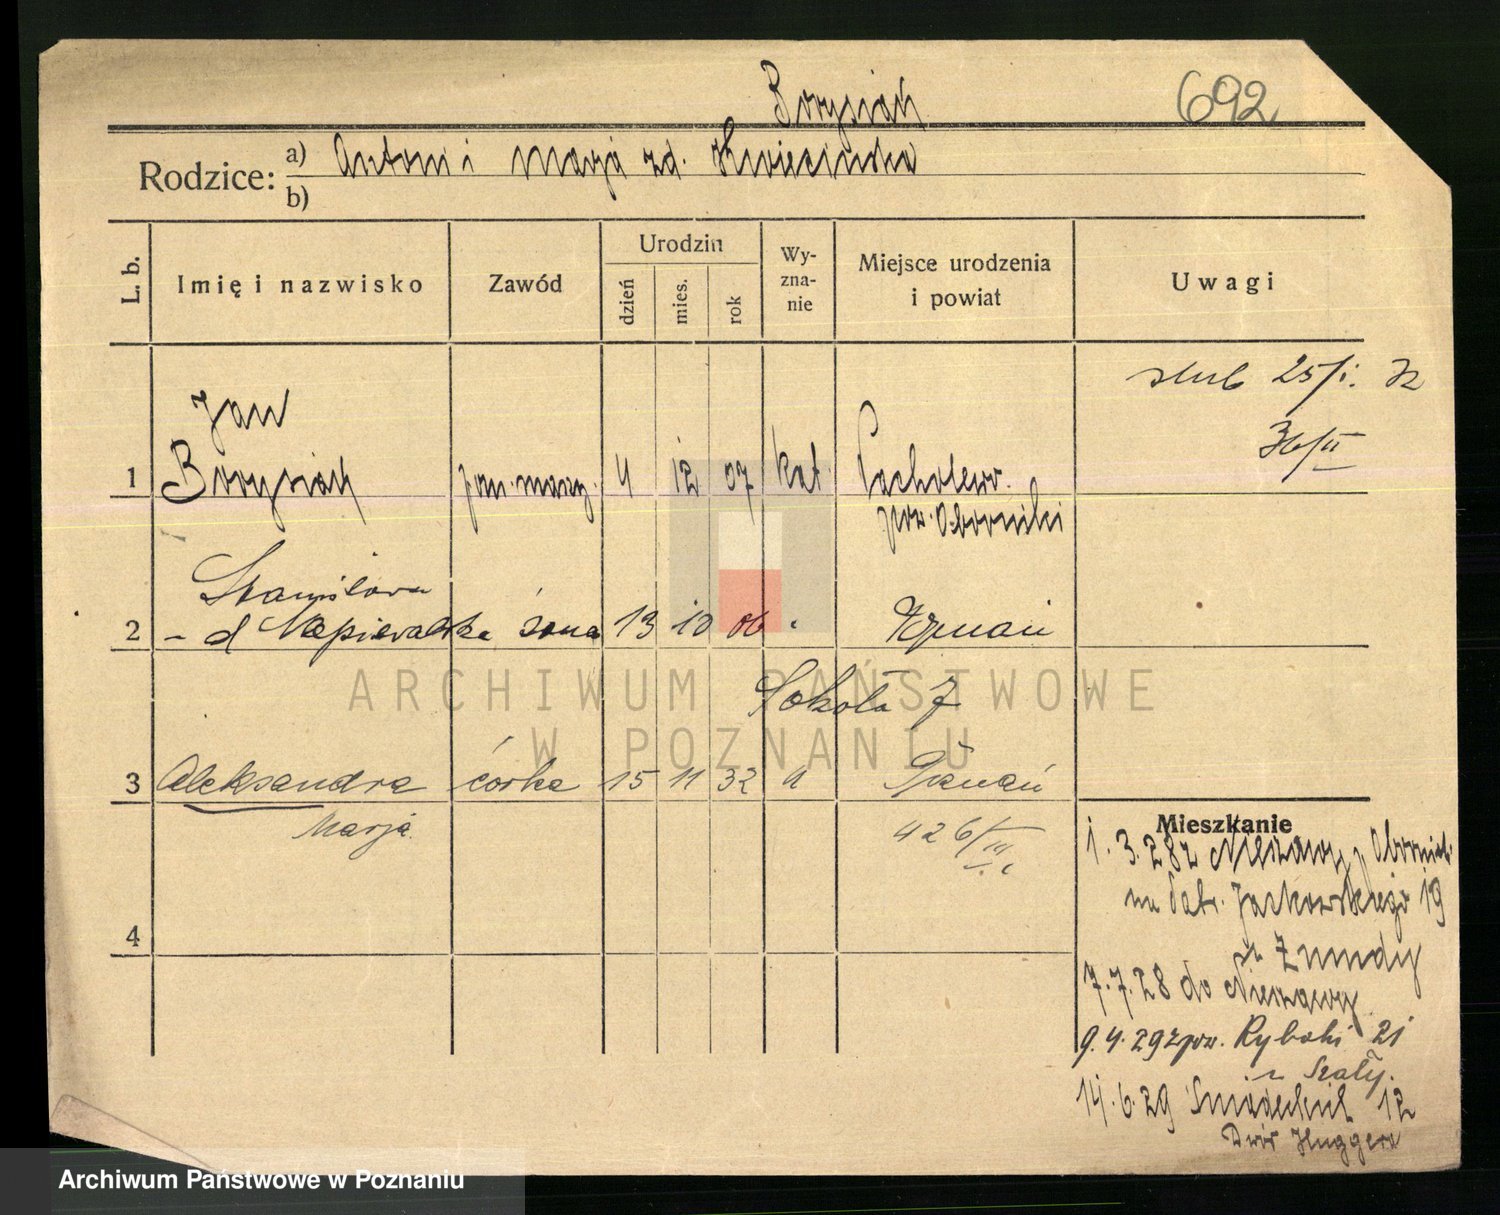 Borysiak
692
Rodzice: a) Antoni i Marja zd. Kwiecińska
b)
L. b. Imię i nazwisko Zawód Urodzin dzień mies. rok Wyznanie Miejsce urodzenia i powiat Uwagi
ślub 25/I. 32
36/II
Jan
1 Borysiak 4 12 07 kat. Pacholewo
pow. Oborniki
Stanisława
2 - d Napieralska żona 13 10 06 " Poznań
Sokoła 7
3 Aleksandra córka 15 11 32 " Poznań
Marja 426/III
4
Mieszkanie
1. 3. 28 z Nieszawy p. Obornik.
na Patr. Jackowskiego 19
u Zmudy
7. 7. 28 do Nieszawy
9. 4. 29 z pow. Rybaki 21
u Szały.
14. 6. 29 Śniadeckich 12
Dwór Huggera
ARCHIWUM PAŃSTWOWE
W POZNANIU
Archiwum Państwowe w Poznaniu